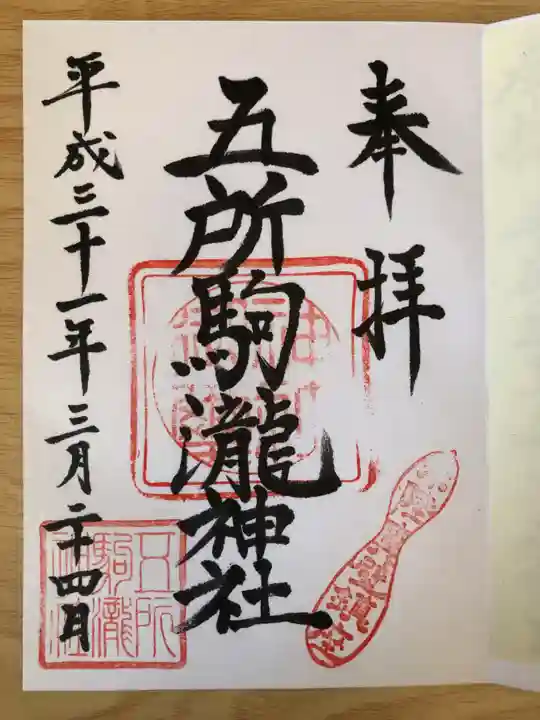 奉拝
五所駒瀧神社
平成三十一年三月二十四月
五所
駒瀧
神社